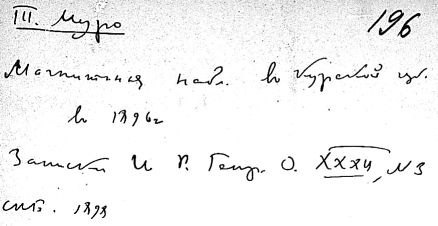 III. Муро 196
Магнитная набл. в Курской губ.
в 1896 г
Записки И. Р. Геогр. О. XXXII, N 3
СПБ. 1898